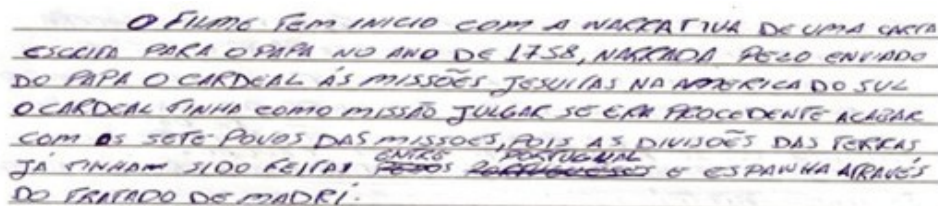 O FILME TEM INICIO COM A NARRATIVA DE UMA CARTA
ESCRITA PARA O PAPA NO ANO DE 1758, NARRADA PELO ENVIADO
DO PAPA O CARDEAL ÁS MISSÕES JESUITAS NA AMERICA DO SUL
O CARDEAL TINHA COMO MISSÃO JULGAR SE ERA PROCEDENTE ACABAR
COM OS SETE POVOS DAS MISSOES, POIS AS DIVISÕES DAS TERRAS
ENTRE PORTUGUAL
JÁ TINHAM SIDO FEITAS PELOS PORTUGUESES E ESPANHA ATRAVÉS
DO TRATADO DE MADRI.